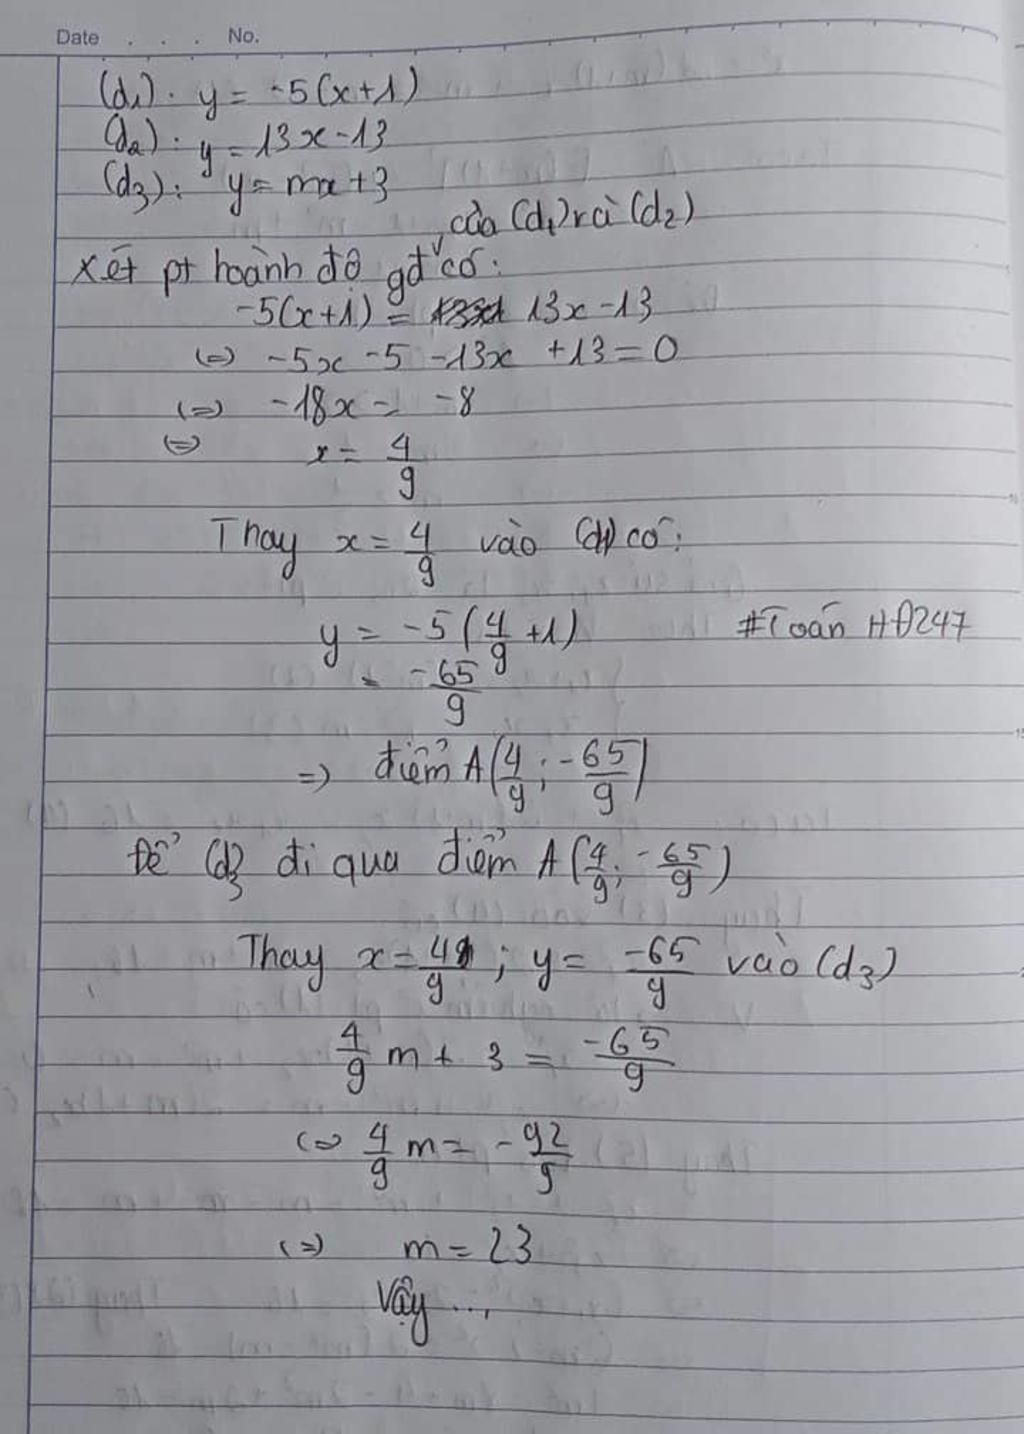 Date . . . No.
(d₁): y = -5(x+1)
(d₂): y = 13x-13
(d₃): y = mx+3
của (d₁) và (d₂)
Xét pt hoành độ gđ có:
-5(x+1) = 13x-13
(=) -5x -5 -13x +13=0
(=) -18x = -8
(=) x = 4/9
Thay x = 4/9 vào (d₁) có:
y = -5(4/9 +1) #Toán HĐ247
= -65/9
=) điểm A(4/9; -65/9)
Để (d₃ đi qua điểm A(4/9; -65/9)
Thay x = 4/9; y = -65/9 vào (d₃)
4/9 m + 3 = -65/9
(=) 4/9 m = -92/9
(=) m = 23
Vậy ...